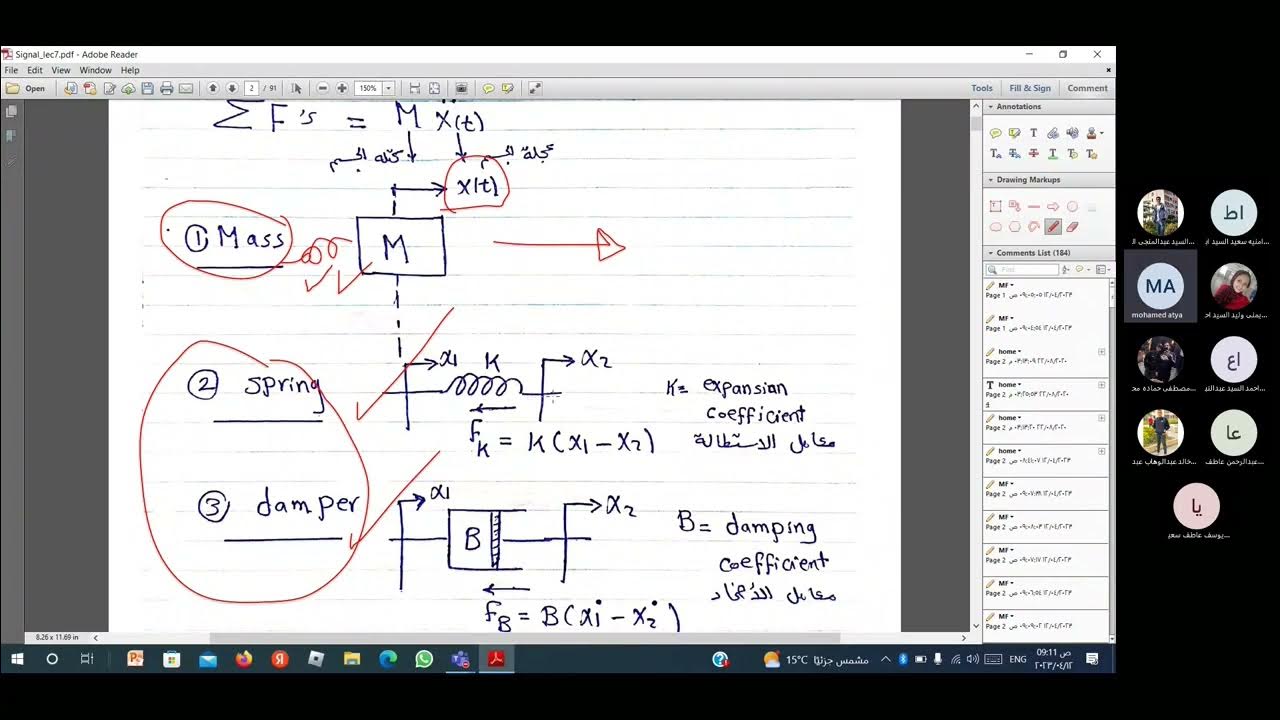 Signal_lec7.pdf - Adobe Reader
File Edit View Window Help
Open
2 / 91
150%
Tools Fill & Sign Comment
Σ F's = M Ẍ(t)
كتلة الجسم
عجلة الجسم
X(t)
① Mass
M
② spring
x1 K x2
K = expansion
coefficient
معامل الاستطالة
FK = K(x1 - x2)
③ damper
x1 B x2
B = damping
coefficient
معامل الأخماد
FB = B(ẋ1 - ẋ2)
8.26 x 11.69 in
Annotations
T
Drawing Markups
Comments List (184)
Find
MF
Page 1
MF
Page 1
home
Page 2
home
Page 2
home
Page 2
home
Page 2
MF
Page 2
MF
Page 2
MF
Page 2
MF
Page 2
MF
Page 2
السيد عبدالمنجى ال...
اط
امنيه سعيد السيد اب...
MA
mohamed atya
يمنى وليد السيد اح...
مصطفى حماده مح...
اع
احمد السيد عبدالني...
خالد عبدالوهاب عبد...
عا
عبدالرحمن عاطف...
يا
يوسف عاطف سعي...
15°C مشمس جزئيًا
ENG
09:11 ص
٢٠٢٣/٠٤/١٢